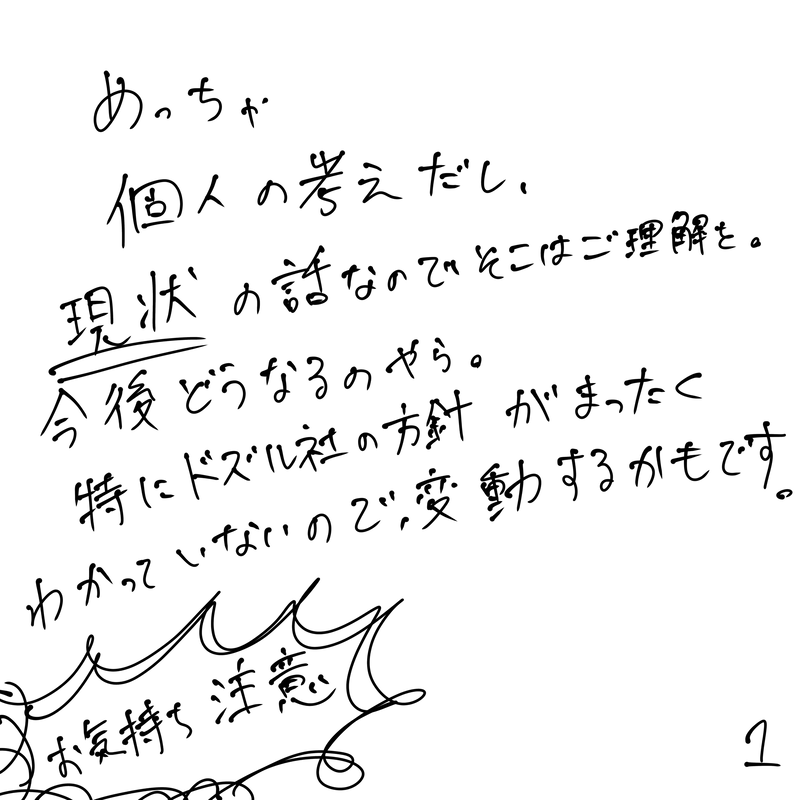 めっちゃ
個人の考えだし、
現状の話なのでそこはご理解を。
今後どうなるのやら。
特にドズル社の方針がまったく
わかっていないので、変動するかもです。
お気持ち注意
1